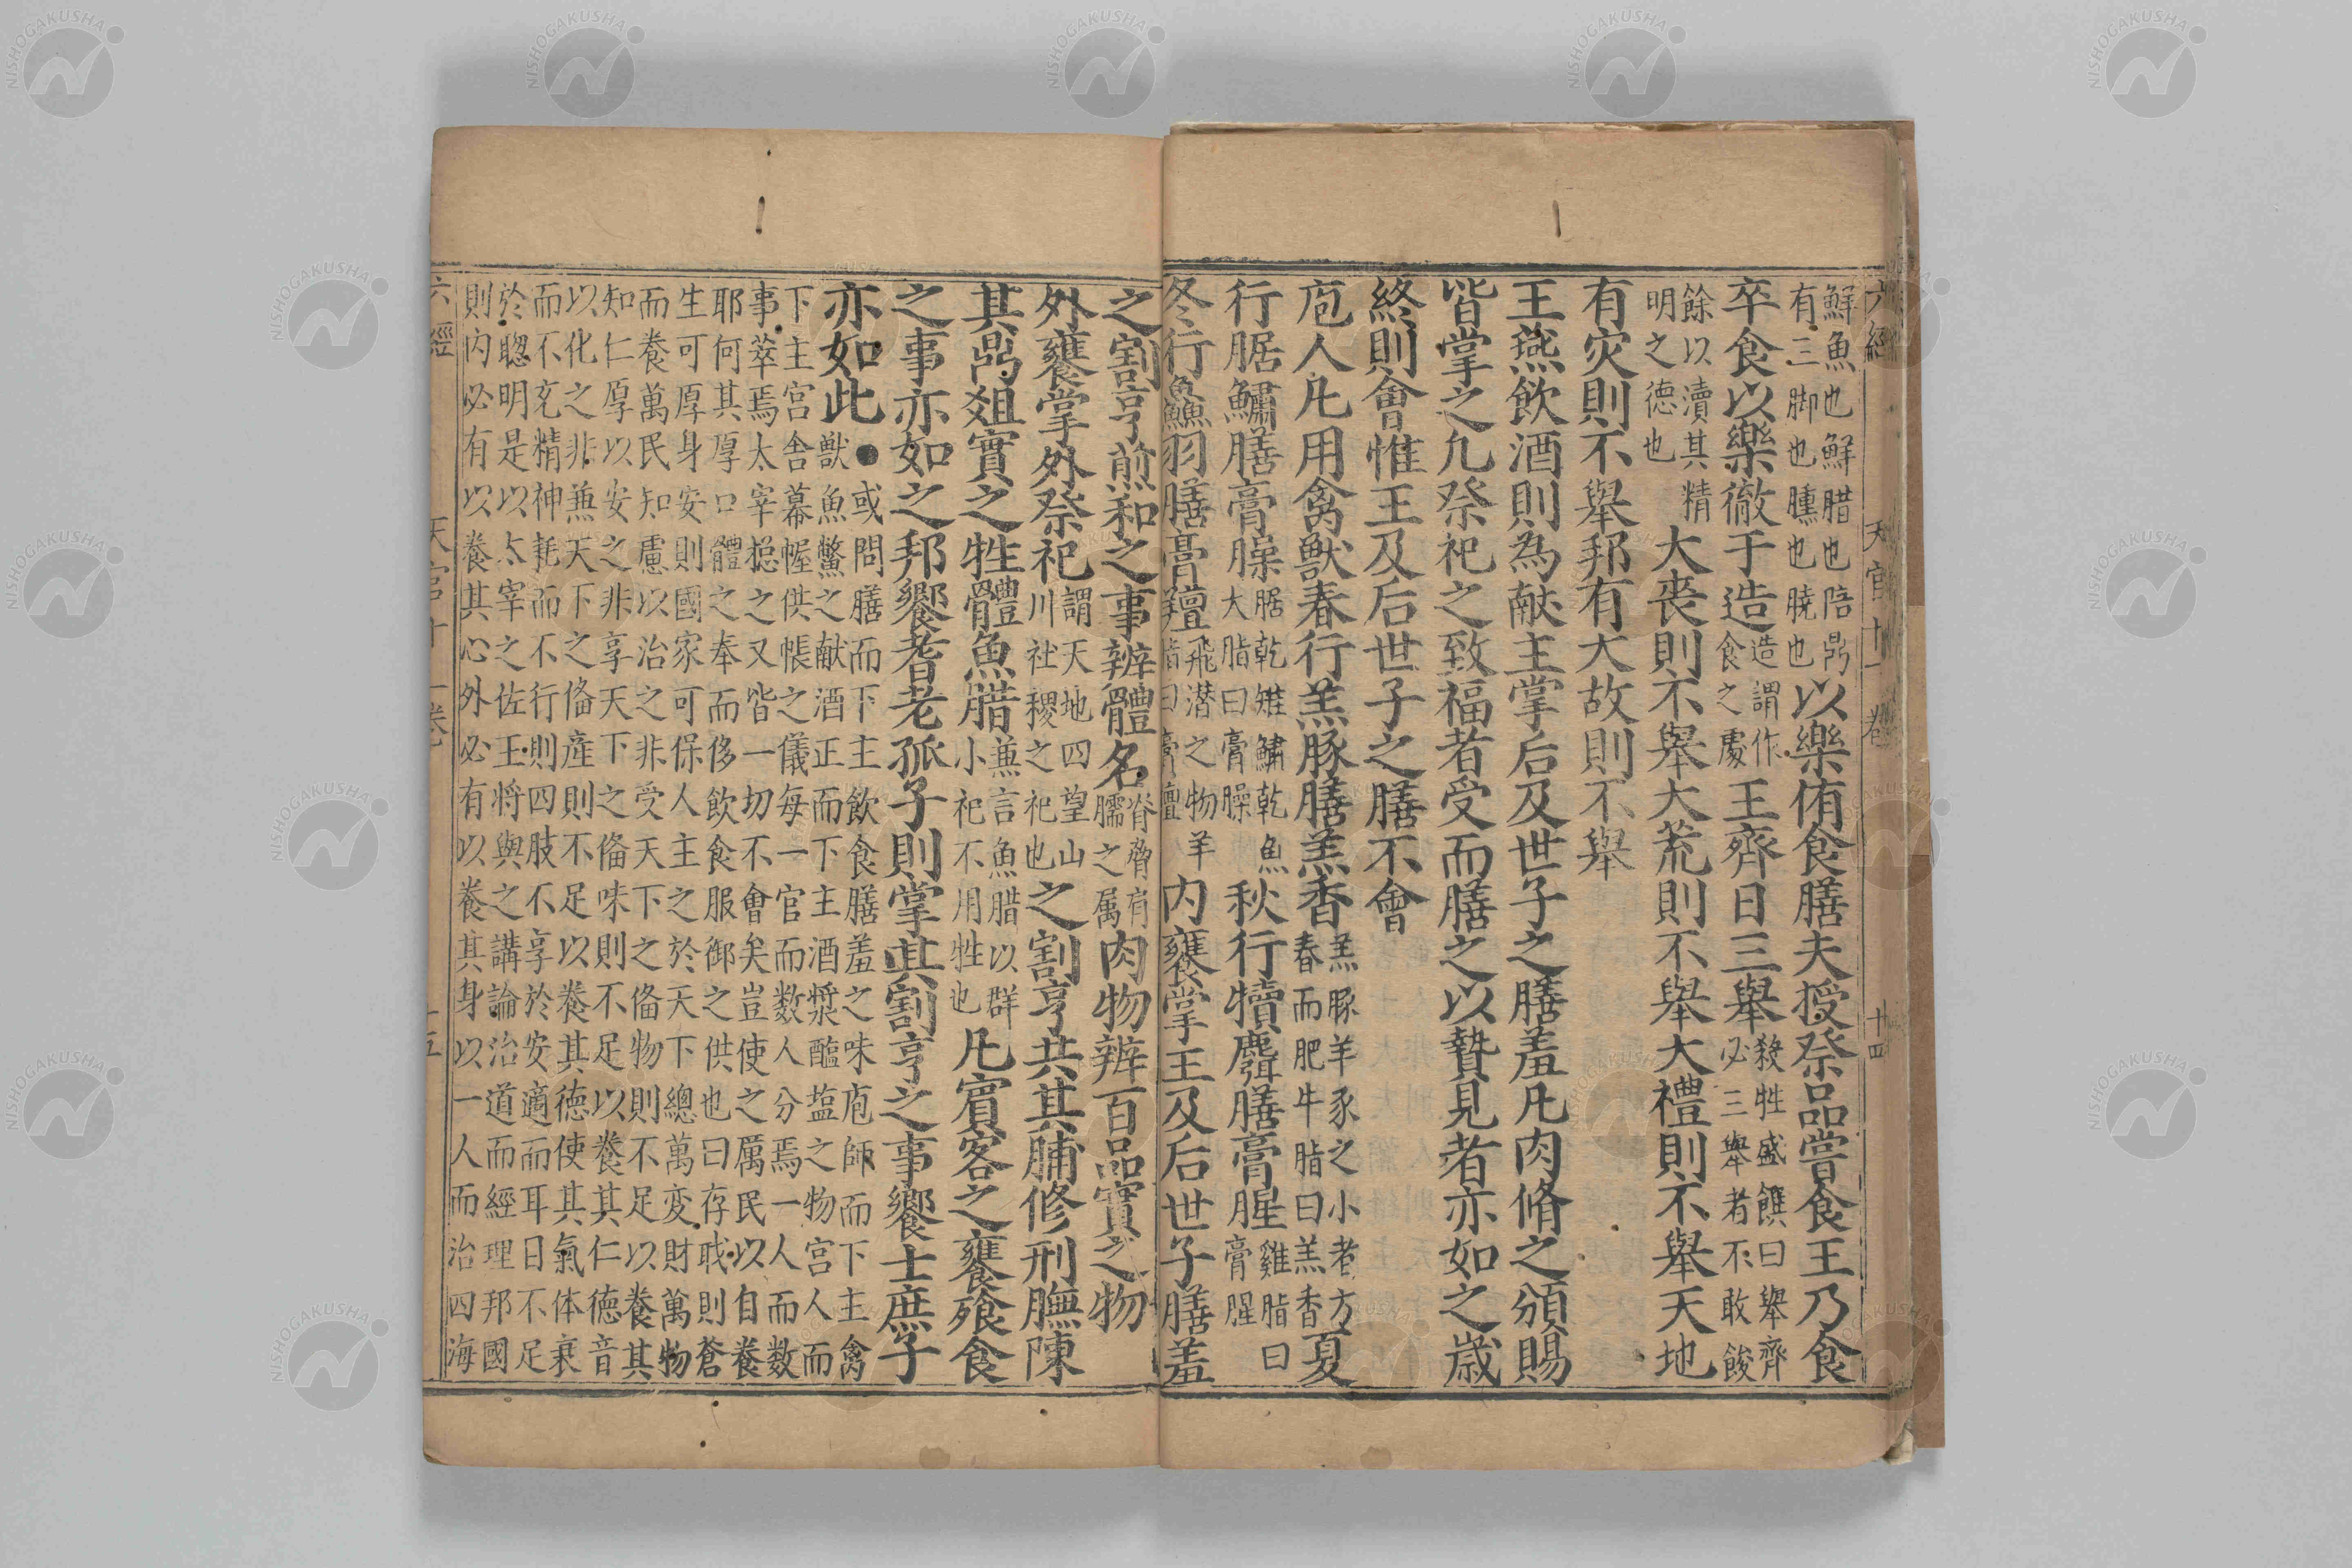 六經 天官十一卷 十四
鮮魚也鮮腊也陪鼎
有三脚也臐也膮也
以樂侑食膳夫授祭品嘗食王乃食
卒食以樂徹于造
造謂作
食之處
王齊日三舉
殺牲盛饌曰舉齊
必三舉者不敢餕
餘以瀆其精
明之德也
大喪則不舉大荒則不舉大禮則不舉天地
有灾則不舉邦有大故則不舉
王燕飲酒則為献主掌后及世子之膳羞凢肉脩之頒賜
皆掌之凢祭祀之致福者受而膳之以贄見者亦如之歳
終則會惟王及后世子之膳不會
庖人凢用禽獸春行羔豚膳羔香
羔豚羊豕之小者方
春而肥牛脂曰羔香
夏
行腒鱐膳膏臊
腒乾雉鱐乾魚
大脂曰膏臊
秋行犢麛膳膏腥
雞脂曰
膏腥
冬行鱻羽膳膏羶
飛潜之物羊
脂曰膏羶
内饔掌王及后世子膳羞
之割亨煎和之事辨體名
脊脅肩
臑之属
肉物辨百品實之物
外饔掌外祭祀
謂天地四望山
川社稷之祀也
之割亨共其脯修刑膴陳
其鼎爼實之牲體魚腊
兼言魚腊以群
小祀不用牲也
凢賓客之饔飱食
之事亦如之邦饗耆老孤子則掌其割亨之事饗士庶子
亦如此
●或問膳而下主飲食膳羞之味庖師而下主禽
獸魚鱉之献酒正而下主酒漿醢塩之物宫人而
下主宫舎幕幄供帳之儀每一官而数人分焉一人而数
事萃焉太宰捴之又皆一切不會矣豈使之厲民以自養
耶何其厚口體之奉而侈飲食服御之供也曰存戢則蒼
生可厚身安則國家可保人主之於天下總萬変財萬物
而養萬民知慮以治之非受天下之俻物則不足以養其
知仁厚以安之非享天下之俻味則不足以養其仁德音
以化之非兼天下之俻産則不足以養其德使其氣体衰
而不充精神耗而不行則四肢不享於安適而耳目不足
於聡明是以太宰之佐王将與之講論治道而經理邦國
則内必有以養其心外必有以養其身以一人而治四海
六經 天官十一卷 十五